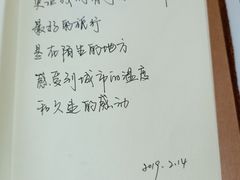 最好的旅行
是在陌生的地方
感受到城市的温度
和久违的感动
2019.2.14